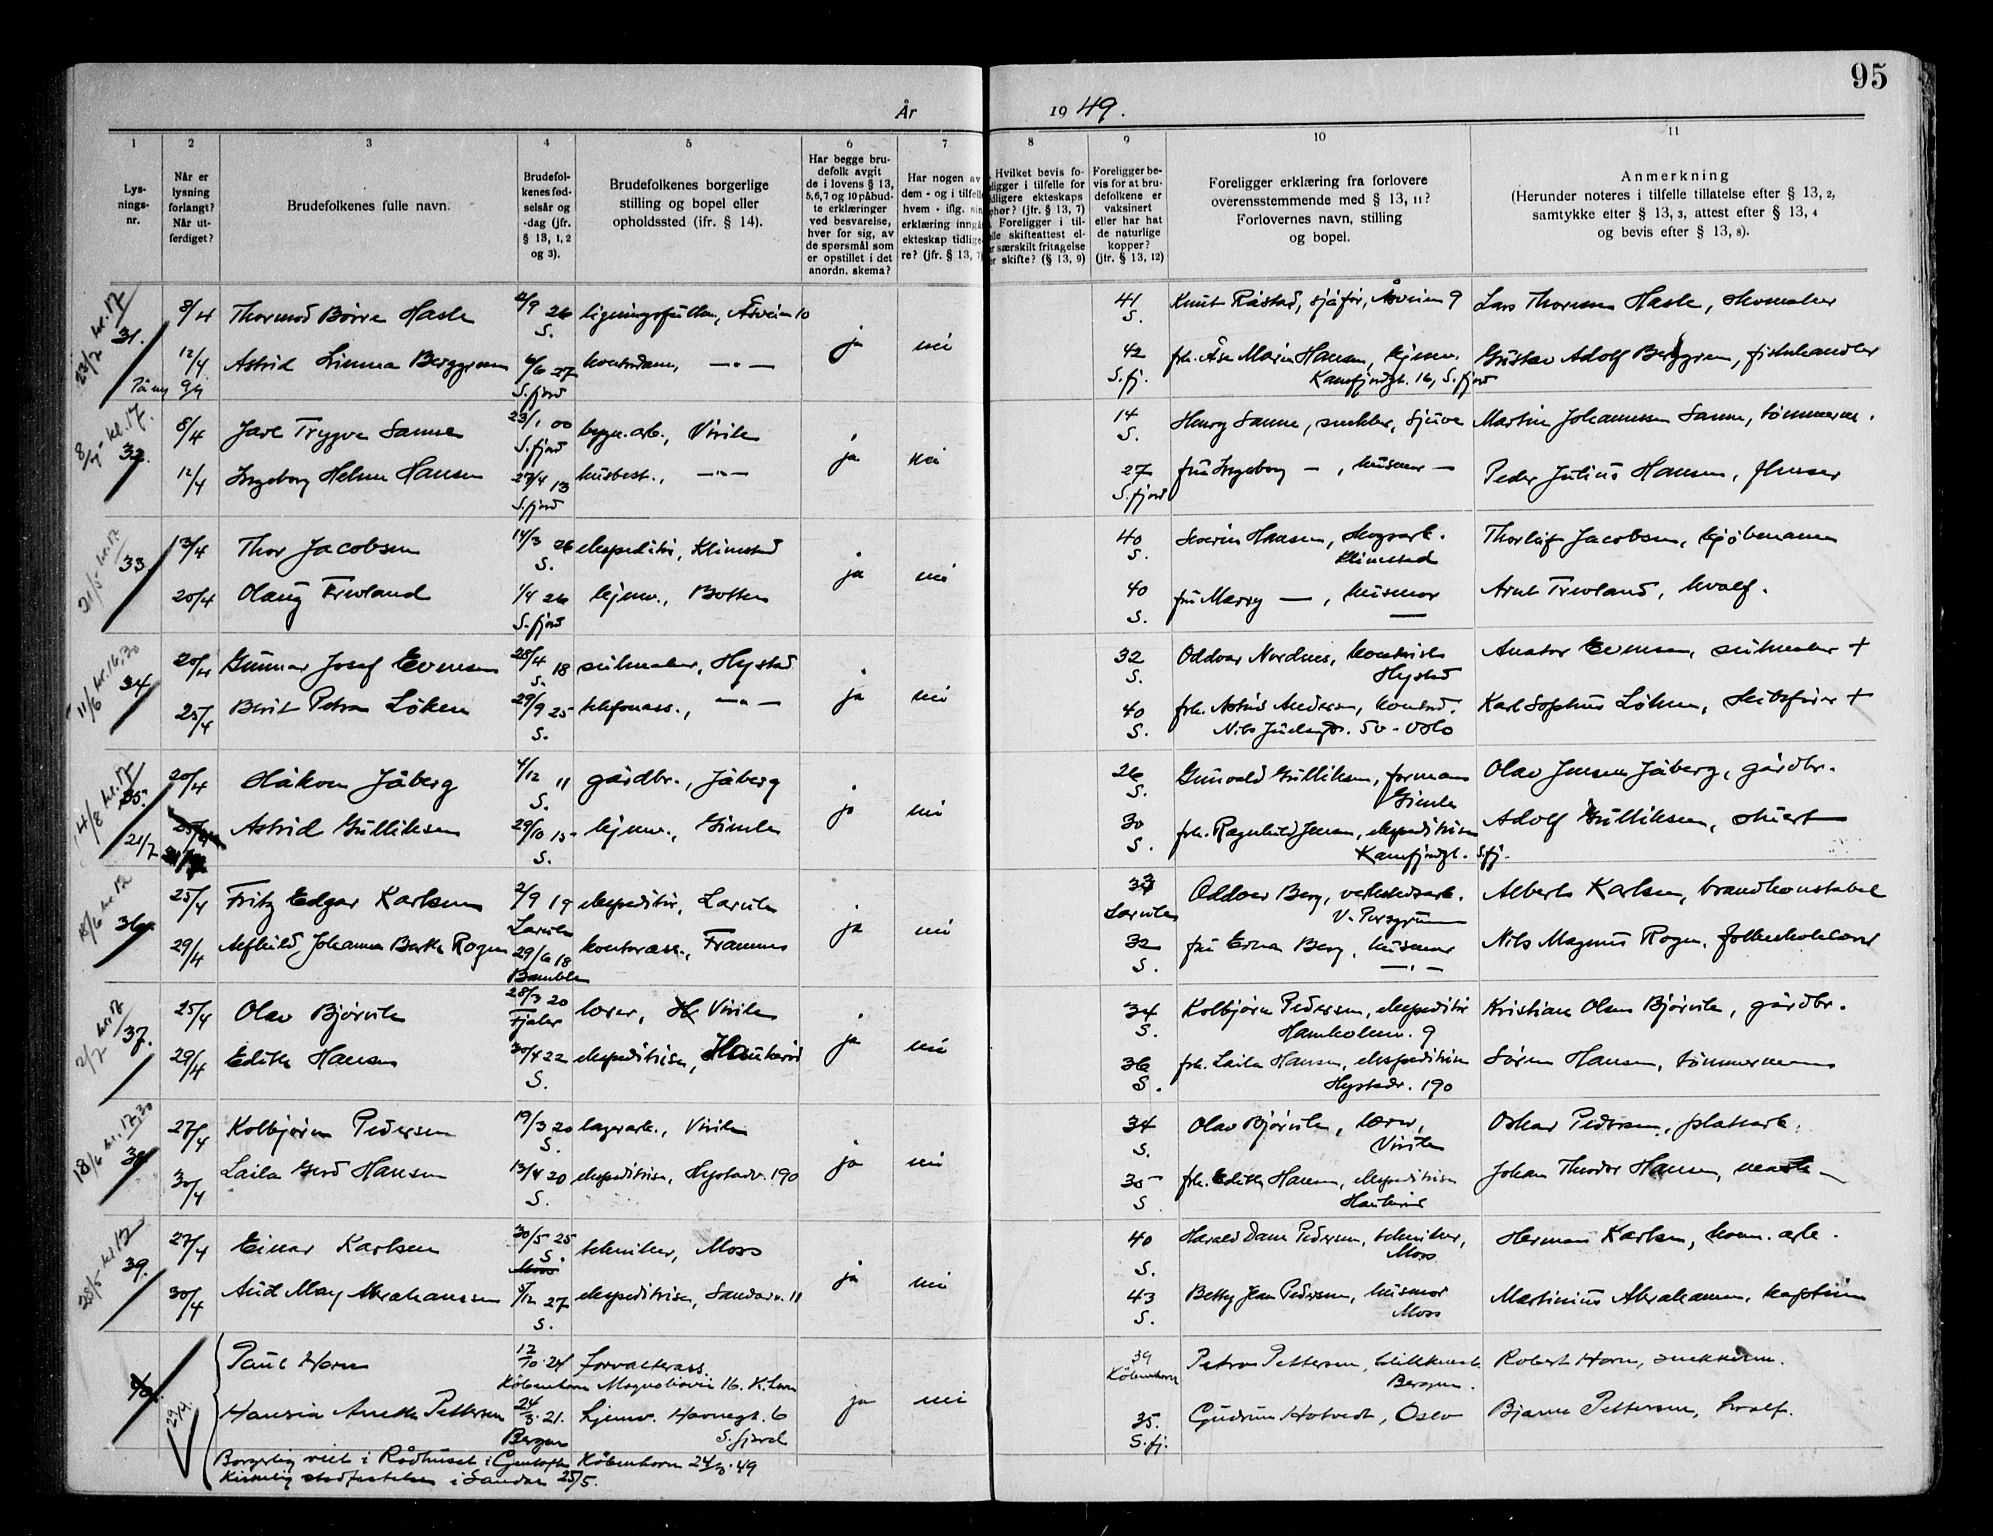 95
År 1949.
1 2 3 4 5 6 7 8 9 10 11
Lys-
nings-
nr.
Når er
lysning
forlangt?
Når ut-
ferdiget?
Brudefolkenes fulle navn.
Brudefol-
kenes fød-
selsår og
-dag (jfr.
§ 13, 1, 2
og 3).
Brudefolkenes borgerlige
stilling og bopel eller
opholdssted (ifr. § 14).
Har begge bru-
defolk avgit
de i lovens § 13,
5,6,7 og 10 påbud-
te erklæringer
ved besvarelse,
hver for sig, av
de spørsmål som
er opstillet i det
anordn. skema?
Har nogen av
dem - og i tilfelle
hvem - iflg. sin
erklæring inngå
ekteskap tidlige-
re? (jfr. § 13, 7)
Hvilket bevis fo-
religger i tilfelle for
tidligere ekteskaps
ophør? (jfr. § 13, 7)
Foreligger i til-
felle skifteattest el-
ler særskilt fritagelse
for skifte? (§ 13, 9)
Foreligger be-
vis for at bru-
defolkene er
vaksinert
eller har hat
de naturlige
kopper?
(jfr. § 13, 12)
Foreligger erklæring fra forlovere
overensstemmende med § 13, 11?
Forlovernes navn, stilling
og bopel.
Anmerkning
(Herunder noteres i tilfelle tillatelse efter § 13, 2,
samtykke efter § 13, 3, attest efter § 13, 4
og bevis efter § 13, 8).
23/7 kl. 17
31. 8/4 Thormod Børre Hasle 2/9 26 S. Åsveien 10 ja nei 41 S. Knut Råstad, sjåfør, Åsveien 9 Lars Thorsen Hasle, skomaker
12/4 Astrid Linnea Berggren 6/6 27 S.fjord kontordame, —"— 42 S.fj. frk. Åse Marie Hansen, hjemv. Gustav Adolf Berggren, fiskehandler
Kamfjordgt. 16, S.fjord
8/7 - kl. 17.
32. 8/4 Jarl Trygve Sanne 23/1 00 S.fjord bygn.arb., Virik ja nei 14 S. Henry Sanne, snekker, Sjuve Martin Johannessen Sanne, tømmerm.
12/4 Ingeborg Helene Hansen 27/4 13 S.fjord husbest., —"— 27 S.fjord fru Ingeborg —, husmor — Peder Julius Hansen,
21/5 - kl. 17
33. 13/4 Thor Jacobsen 14/3 26 S. ekspeditør, Klinestad ja nei 40 S. Severin Hansen, skogsarb. Klinestad Thorleif Jacobsen, kjøbmann
20/4 Olaug Frevland 1/4 26 S.fjord hjemv., Botten 40 S. fru Marry —, husmor — Arnt Frevland, hvalf.
11/6 kl. 16,30
34. 20/4 Gunnar Josef Evensen 28/4 18 S. Hystad ja nei 32 S. Oddvar Nordnes, Hystad Anator Evensen, +
25/4 Berit Petra Løken 29/9 25 S. telefonass., —"— 40 S. frk. Astrid Andersen, Oslo Karl Sophus Løken, skibsfører +
4/8 kl. 17
35. 20/4 Håkon Jåberg 4/12 11 S. gårdbr., Jåberg ja nei 26 S. Gunvald Gulliksen, formann Gimle Olav Jensen Jåberg, gårdbr.
21/7 Astrid Gulliksen 29/10 15 S. hjemv., Gimle 30 S. frk. Ragnhild Jensen, ekspeditrise Kamfjordgt. S.fj. Adolf Gulliksen, stuert
18/6 kl 12
36. 25/4 Fritz Edgar Karlsen 2/9 19 Larvik ekspeditør, Larvik ja nei 33 Larvik Oddvar Berg, verkstedsarb. V. Porsgrunn Alberth Karlsen, brandkonstabel
29/4 Alfhild Johanna Berthe Rogn 29/6 18 Bamble kontorass., Framnes 32 S. fru Erna Berg, husmor —"— Nils Magnus Rogn, folkeskolelærer
2/7 kl. 17
37. 25/4 Olav Bjørvik 28/3 20 Fjaler lærer, Virik ja nei 34 S. Kolbjørn Pedersen, ekspeditør Hamkolum. 9 Kristian Olsen Bjørvik, gårdbr.
29/4 Edith Hansen 30/4 22 S. ekspeditrise, Haukerød 36 S. frk. Laila Hansen, ekspeditrise Hystadv. 190 Søren Hansen, tømmermann
18/6 kl. 17.30
38 27/4 Kolbjørn Pedersen 19/3 20 S. lagerarb., Virik ja nei 34 S. Olav Bjørvik, lærer, Virik Oskar Pedersen, plattarb.
30/4 Laila Gerd Hansen 13/4 20 S. ekspeditrise, Hystadv. 190 35 S frk. Edith Hansen, ekspeditrise Haukerød Johan Theodor Hansen,
28/5 - kl 17
39. 27/4 Einar Karlsen 30/5 25 S. Moss tekniker, Moss ja nei 40 S. Harald Dane Pedersen, tekniker, Moss Herman Karlsen, komm. arb.
30/4 Aud May Abrahamsen 5/12 27 S. ekspeditrise, Sandarv. 11 43 S. Betty Jean Pedersen, husmor Moss Martinius Abrahamsen, kaptein
40. 29/4 Paul Horn 12/10. 24 København forvalterass. Magnoliavei 16. K.havn ja nei 39 København Petra Pettersen, Bergen. Robert Horn, snekkerm.
Hansia Anette Pettersen 24/3. 21. Bergen hjemv. Havnegt. 6 S.fjord 35. S.fj. Gudrun Hotvedt, Oslo Bjarne Pettersen, hvalf.
Borgerlig viet i Rådhuset i Gentofte København 24/3.49
Kirkelig stadfestelse i Sandar 25/5.